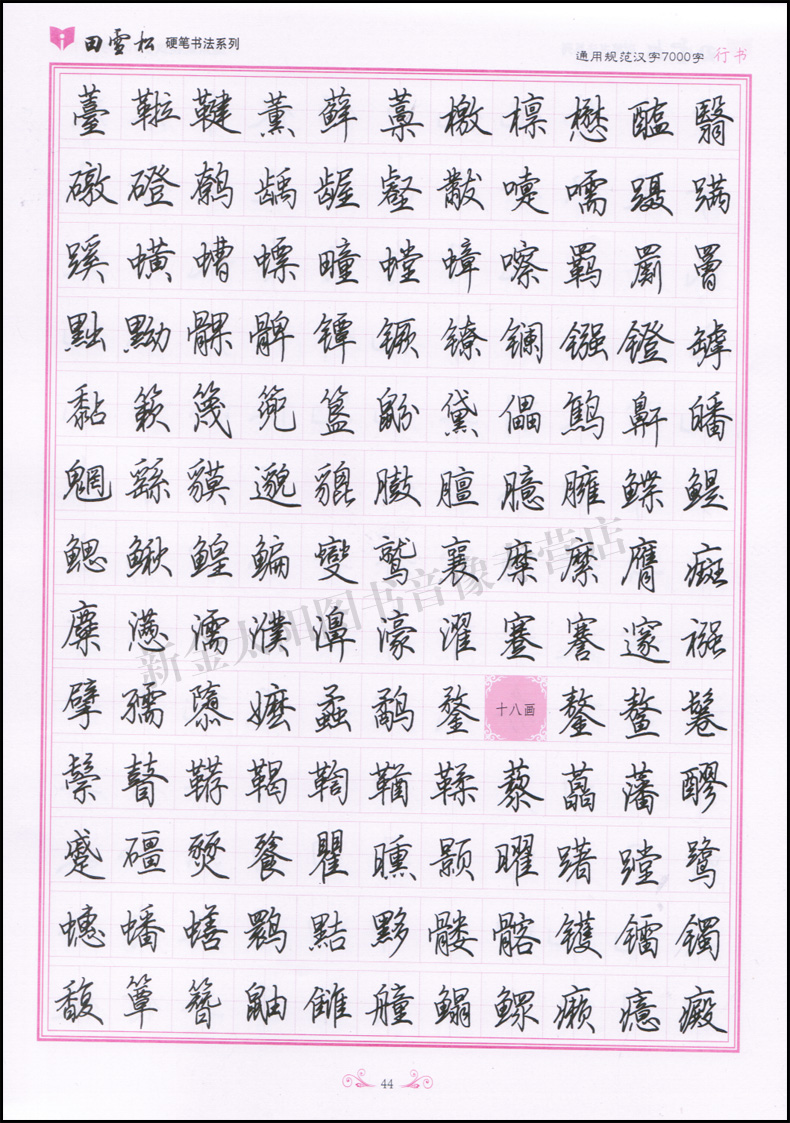 田雪松 硬笔书法系列
通用规范汉字7000字 行书
薹鞡鞬薰藓藁檄檩懋醢翳
礅磴鹩龋龌壑黻嚏嚅蹑蹒
蹊蟥螬螵疃螳蟑嚓羁罽罾
黜黝髁髀镡镢镣镧镪镫罅
黏簌篾篼簋鼢黛儡鹪鼾皤
魍繇貘邈貔臌膻臆臃鲽鳀
鳃鳅鳇鳊燮鹫襄糜縻膺癍
麋懑濡濮濞濠濯蹇謇邃襁
擘孺隳嬷蟊鹬鍪十八画鏊鳌鬈
鬃瞽鞯鞨鞫鞧鞣藜藠藩醪
蹙礓燹餮瞿曛颢曜躇蹚鹭
蟪蟠蟮鹮黠黟髅髂镬镭镯
馥簟簪鼬雠艟鳎鳏癞癔癜
新金太阳图书音像专营店
44